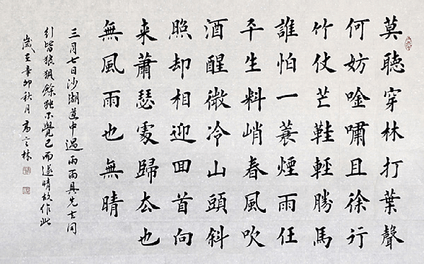 莫聽穿林打葉聲
何妨唫嘯且徐行
竹仗芒鞋輕勝馬
誰怕一蓑煙雨任
平生料峭春風吹
酒醒微冷山頭斜
照却相迎回首向
来蕭瑟處歸去也
無風雨也無晴
三月七日沙湖道中遇雨雨具先去同
行皆狼狽餘獨不覺已而遂晴故作此
歲在辛卯秋月